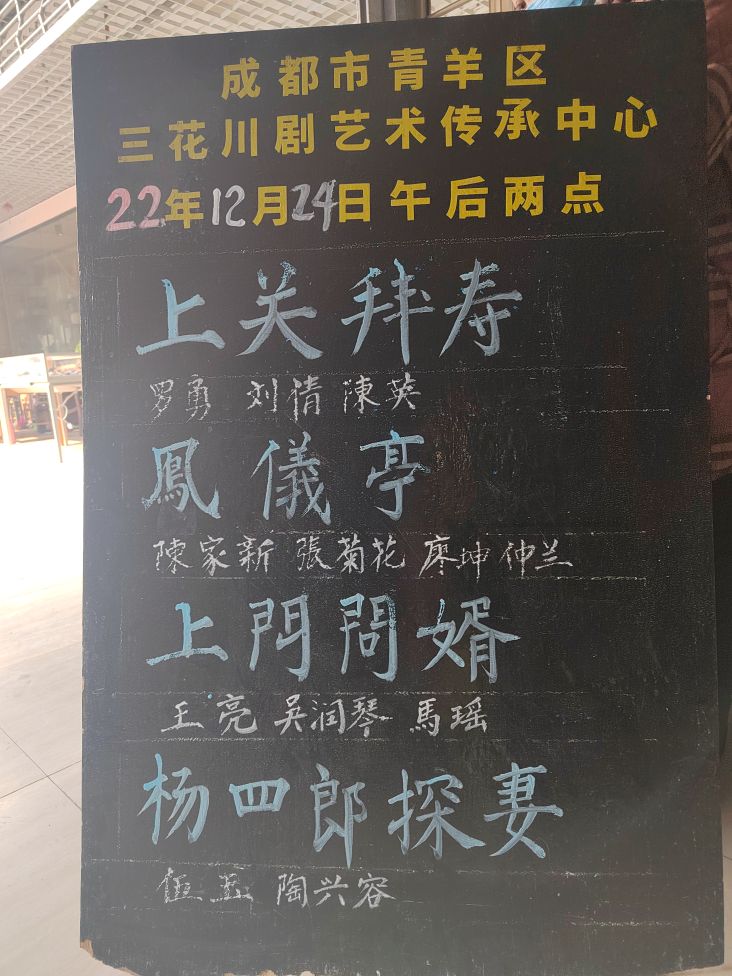 成都市青羊区
三花川剧艺术传承中心
22年12月24日午后两点
上关拜寿
罗勇 刘倩 陳英
鳳儀亭
陳家新 張菊花 廖坤 仲兰
上門問婿
王亮 吴润琴 馬瑶
杨四郎探妻
伍五 陶兴容